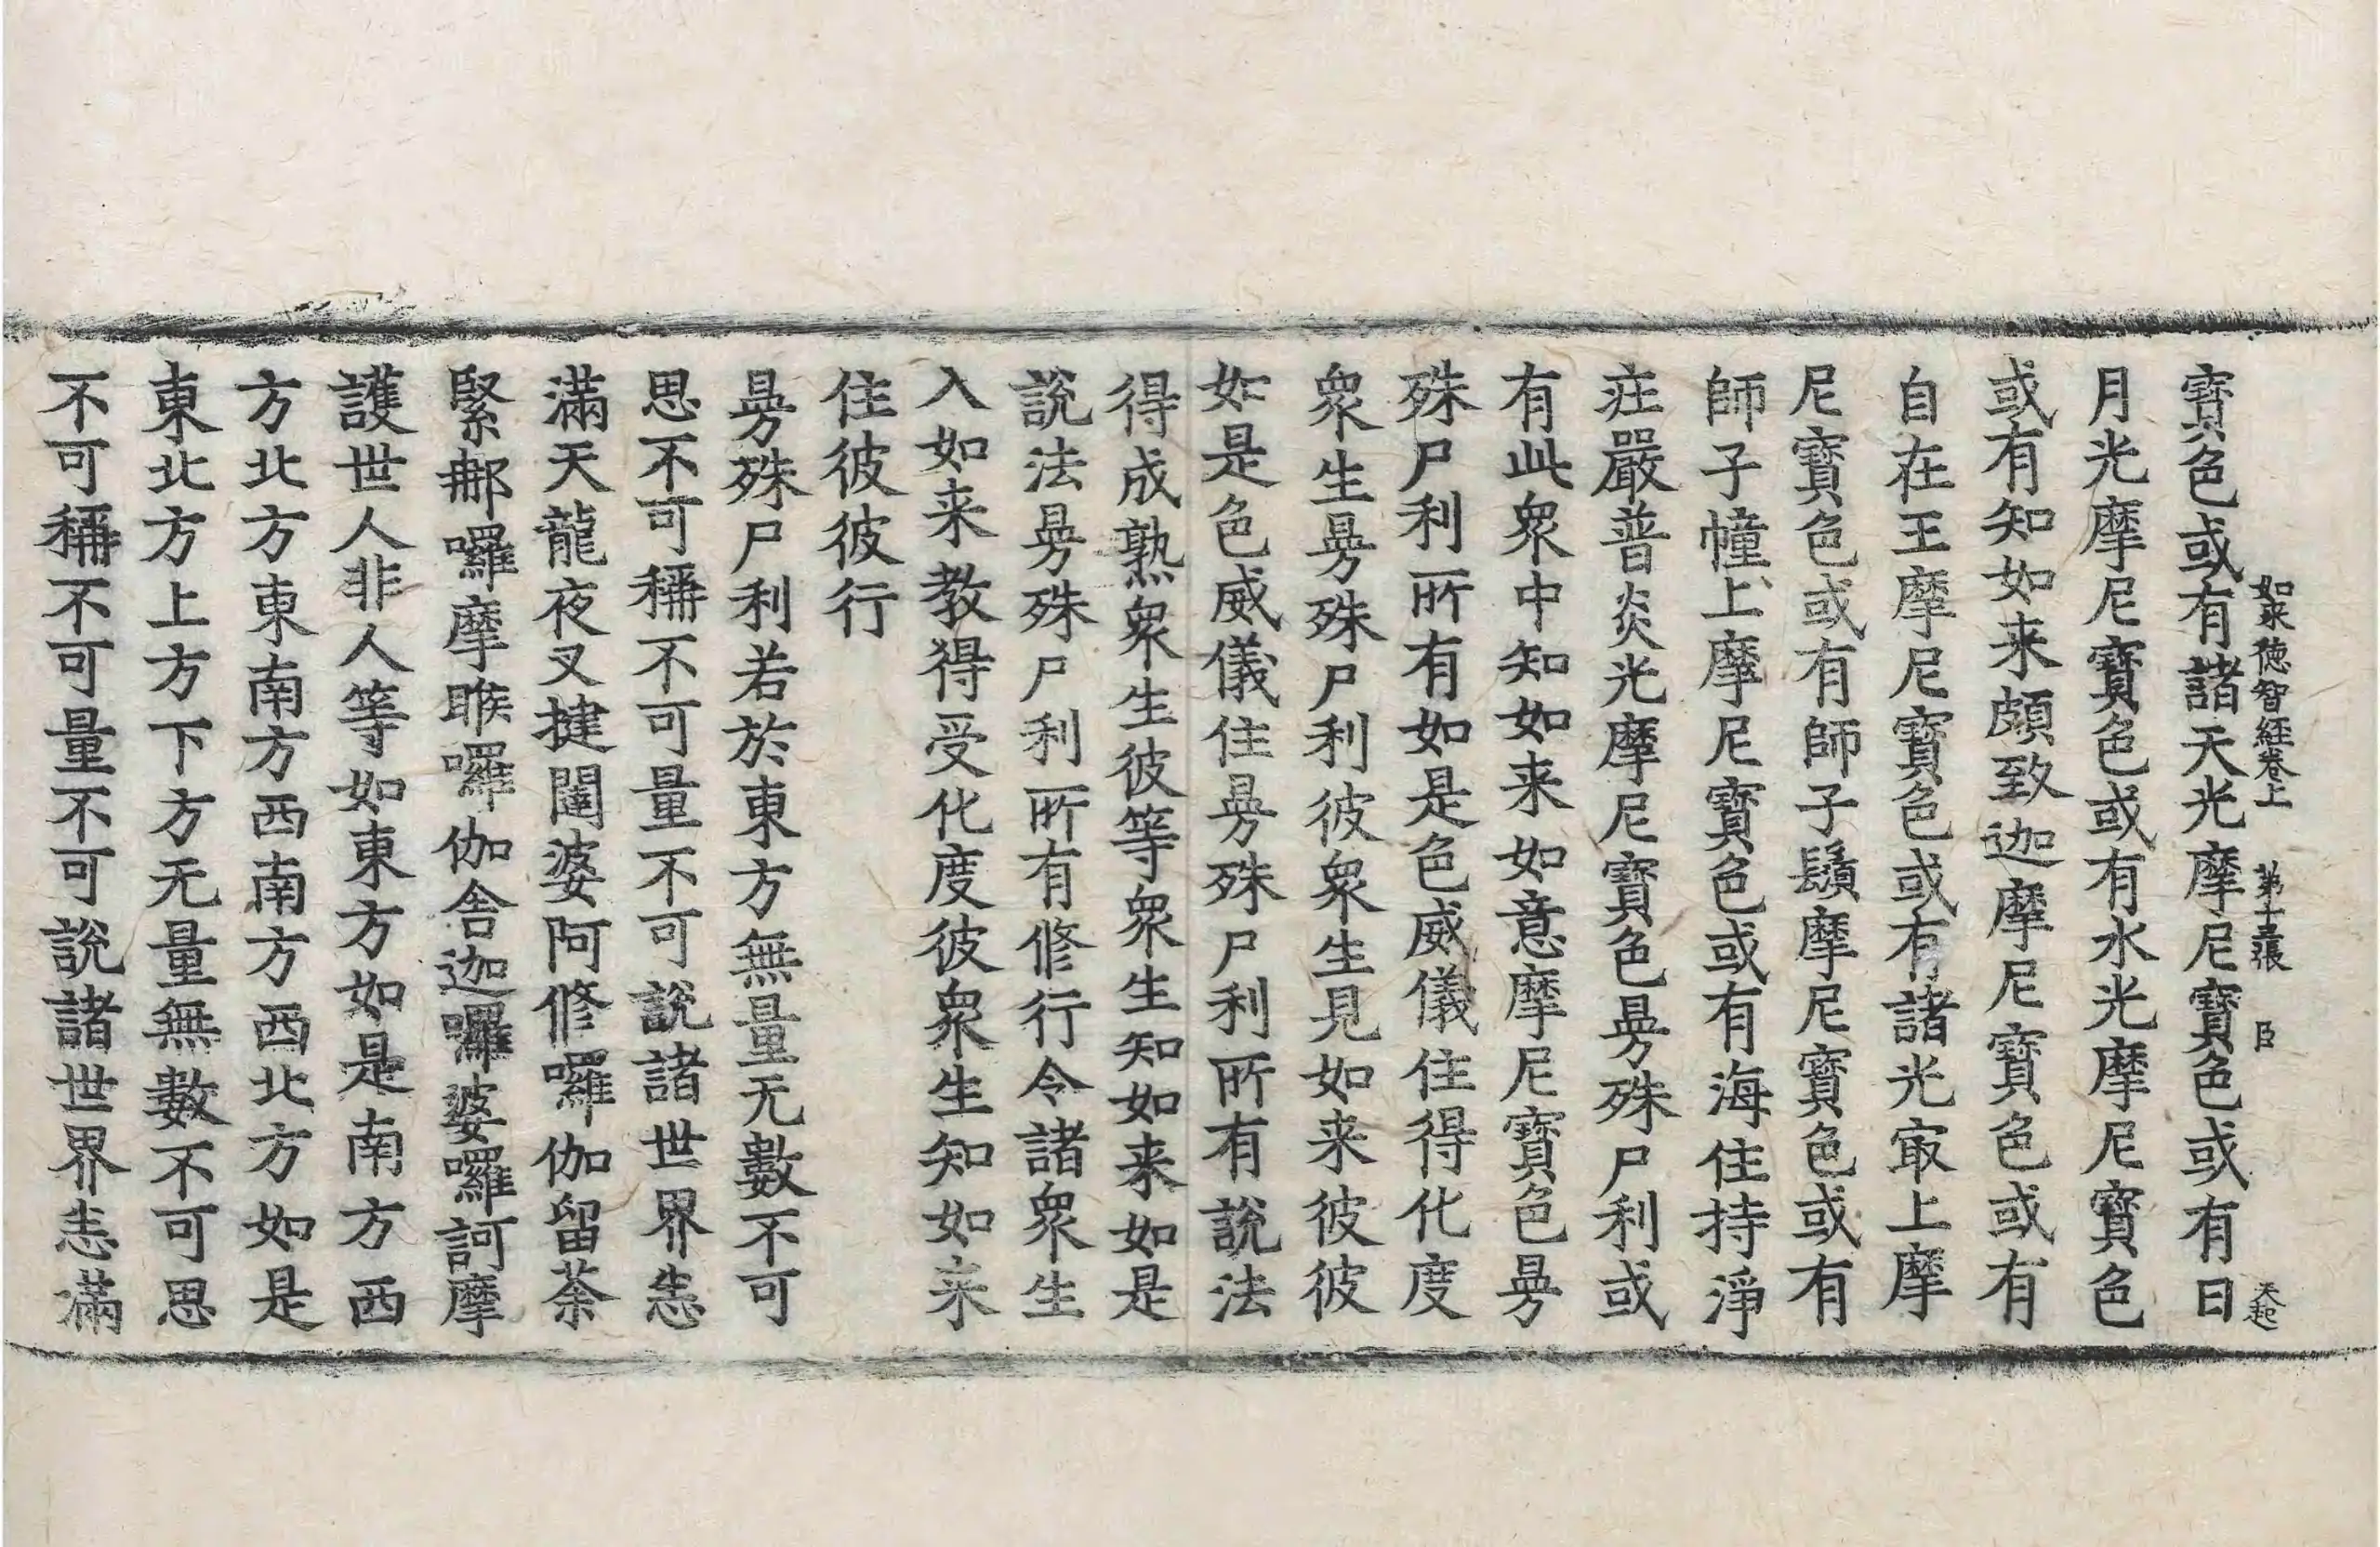 寶色或有諸天光摩尼寶色或有日
如来徳智経卷上 第十三張 臣 天起
月光摩尼寶色或有水光摩尼寶色
或有知如来頗致迦摩尼寶色或有
自在王摩尼寶色或有諸光㝡上摩
尼寶色或有師子鬚摩尼寶色或有
師子幢上摩尼寶色或有海住持淨
莊嚴普炎光摩尼寶色曼殊尸利或
有此衆中知如来如意摩尼寶色曼
殊尸利所有如是色威儀住得化度
衆生曼殊尸利彼衆生見如来彼彼
如是色威儀住曼殊尸利所有說法
得成熟衆生彼等衆生知如来如是
說法曼殊尸利所有修行令諸衆生
入如来教得受化度彼衆生知如来
住彼彼行
曼殊尸利若於東方無量无數不可
思不可稱不可量不可說諸世界悉
滿天龍夜叉揵闥婆阿修囉伽留荼
緊那囉摩睺囉伽舍迦囉婆囉訶摩
護世人非人等如東方如是南方西
方北方東南方西南方西北方如是
東北方上方下方无量無數不可思
不可稱不可量不可說諸世界悉滿